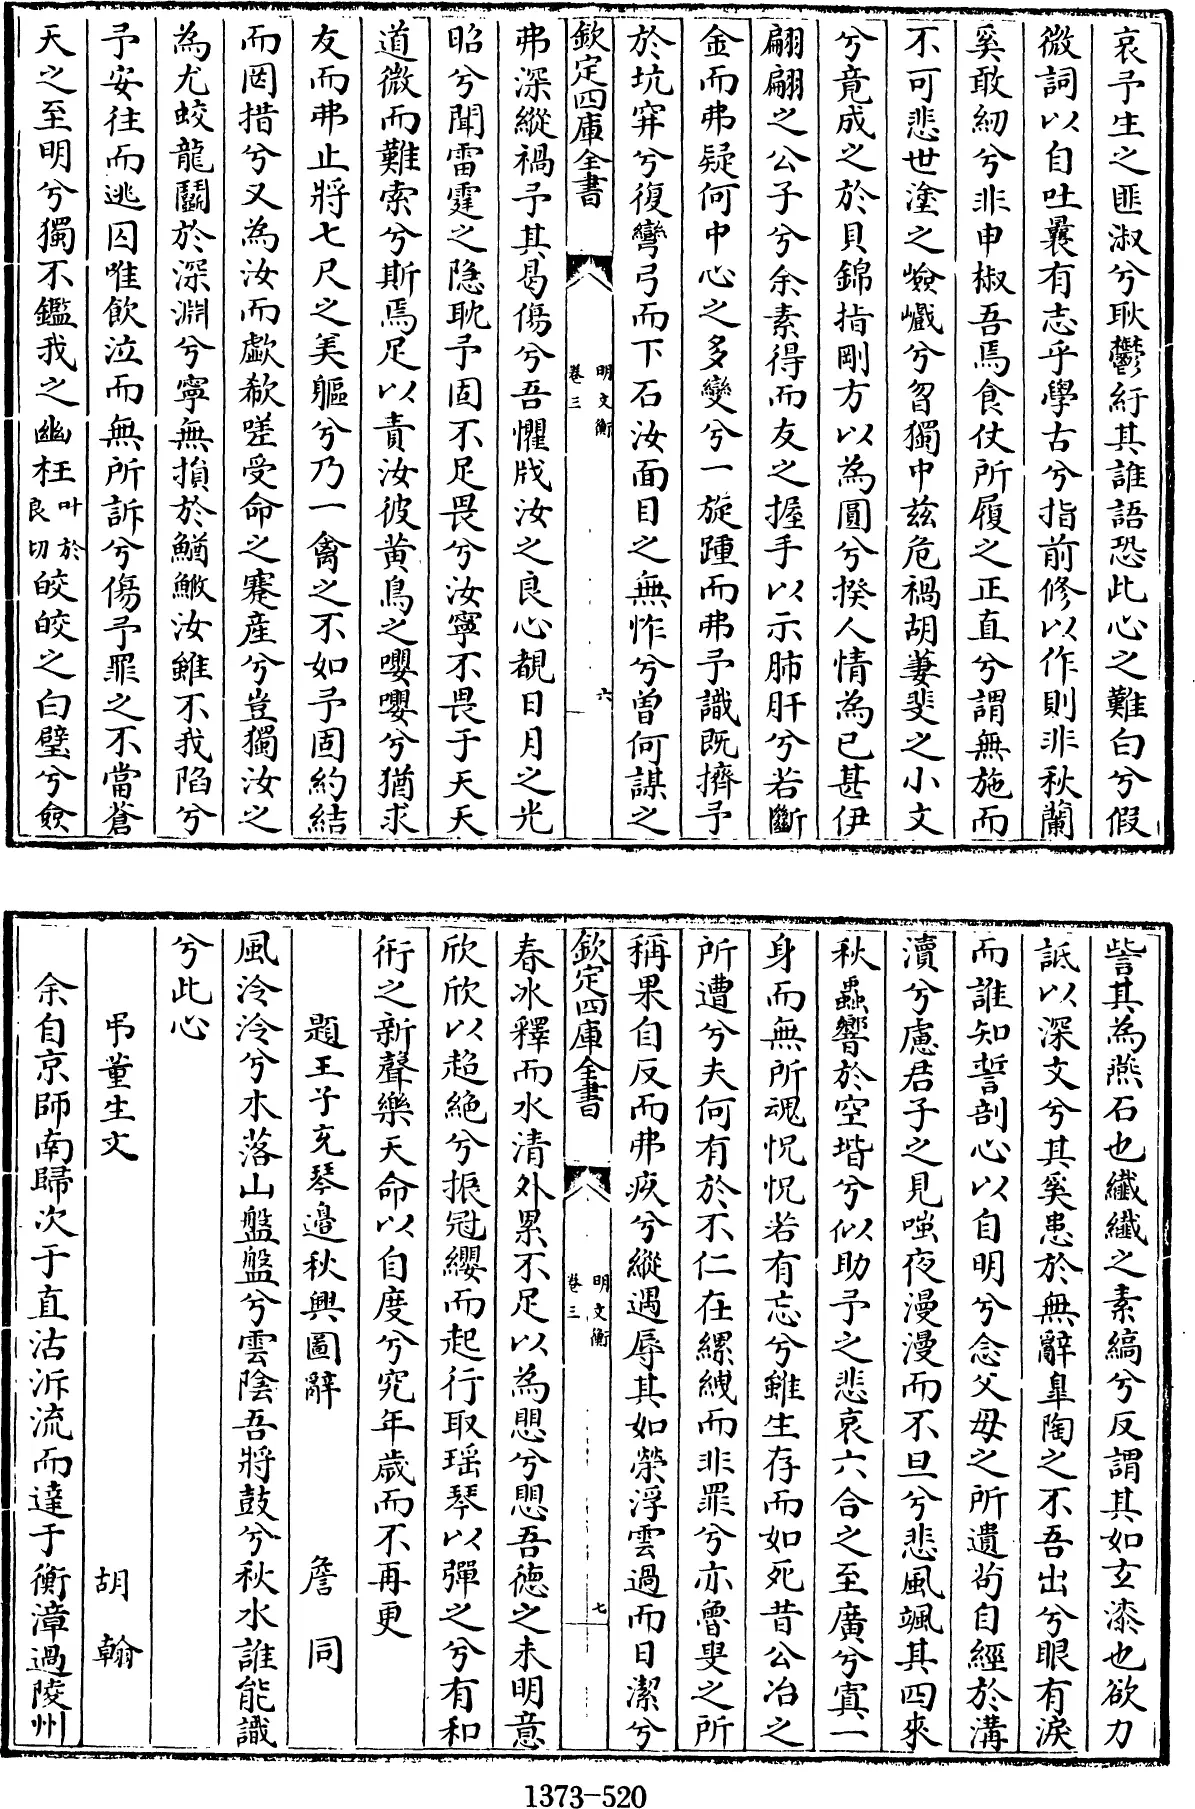 哀予生之匪淑兮耿鬱紆其誰語恐此心之難白兮假
微詞以自吐曩有志乎學古兮指前修以作則非秋蘭
奚敢紉兮非申椒吾焉食仗所履之正直兮謂無施而
不可悲世塗之嶮巇兮曶獨中兹危禍胡萋斐之小文
兮竟成之於貝錦指剛方以為圓兮揆人情為已甚伊
翩翩之公子兮余素得而友之握手以示肺肝兮若斷
金而弗疑何中心之多變兮一旋踵而弗予識既擠予
於坑穽兮復彎弓而下石汝面目之無怍兮曽何謀之
欽定四庫全書
明文衡
卷三
六
弗深縱禍予其曷傷兮吾懼戕汝之良心覩日月之光
昭兮聞雷霆之隐耾予固不足畏兮汝寧不畏于天天
道微而難索兮斯焉足以責汝彼黄鳥之嚶嚶兮猶求
友而弗止將七尺之美軀兮乃一禽之不如予固約結
而罔措兮又為汝而歔欷嗟受命之蹇産兮豈獨汝之
為尤蛟龍鬬於深淵兮寧無損於鰌鰍汝雖不我陷兮
予安往而逃囚唯飲泣而無所訴兮傷予罪之不當蒼
天之至明兮獨不鑑我之幽枉叶於良切皎皎之白璧兮僉
訾其為燕石也纖纖之素縞兮反謂其如玄漆也欲力
詆以深文兮其奚患於無辭臯陶之不吾出兮眼有淚
而誰知誓剖心以自明兮念父母之所遺茍自經於溝
瀆兮慮君子之見嗤夜漫漫而不旦兮悲風颯其四來
秋蟲響於空堦兮似助予之悲哀六合之至廣兮寘一
身而無所魂怳怳若有忘兮雖生存而如死昔公冶之
所遭兮夫何有於不仁在縲絏而非罪兮亦魯叟之所
稱果自反而弗疚兮縱遇辱其如榮浮雲過而日潔兮
欽定四庫全書
明文衡
卷三
七
春冰釋而水清外累不足以為愳兮愳吾徳之未明意
欣欣以超絶兮振冠纓而起行取瑶琴以彈之兮有和
衎之新聲樂天命以自度兮究年歳而不再更
題王子充琴邉秋興圖辭　詹同
風泠泠兮木落山盤盤兮雲陰吾將鼓兮秋水誰能識
兮此心
弔董生文　胡翰
余自京師南歸次于直沽泝流而達于衡漳過陵州
1373-520